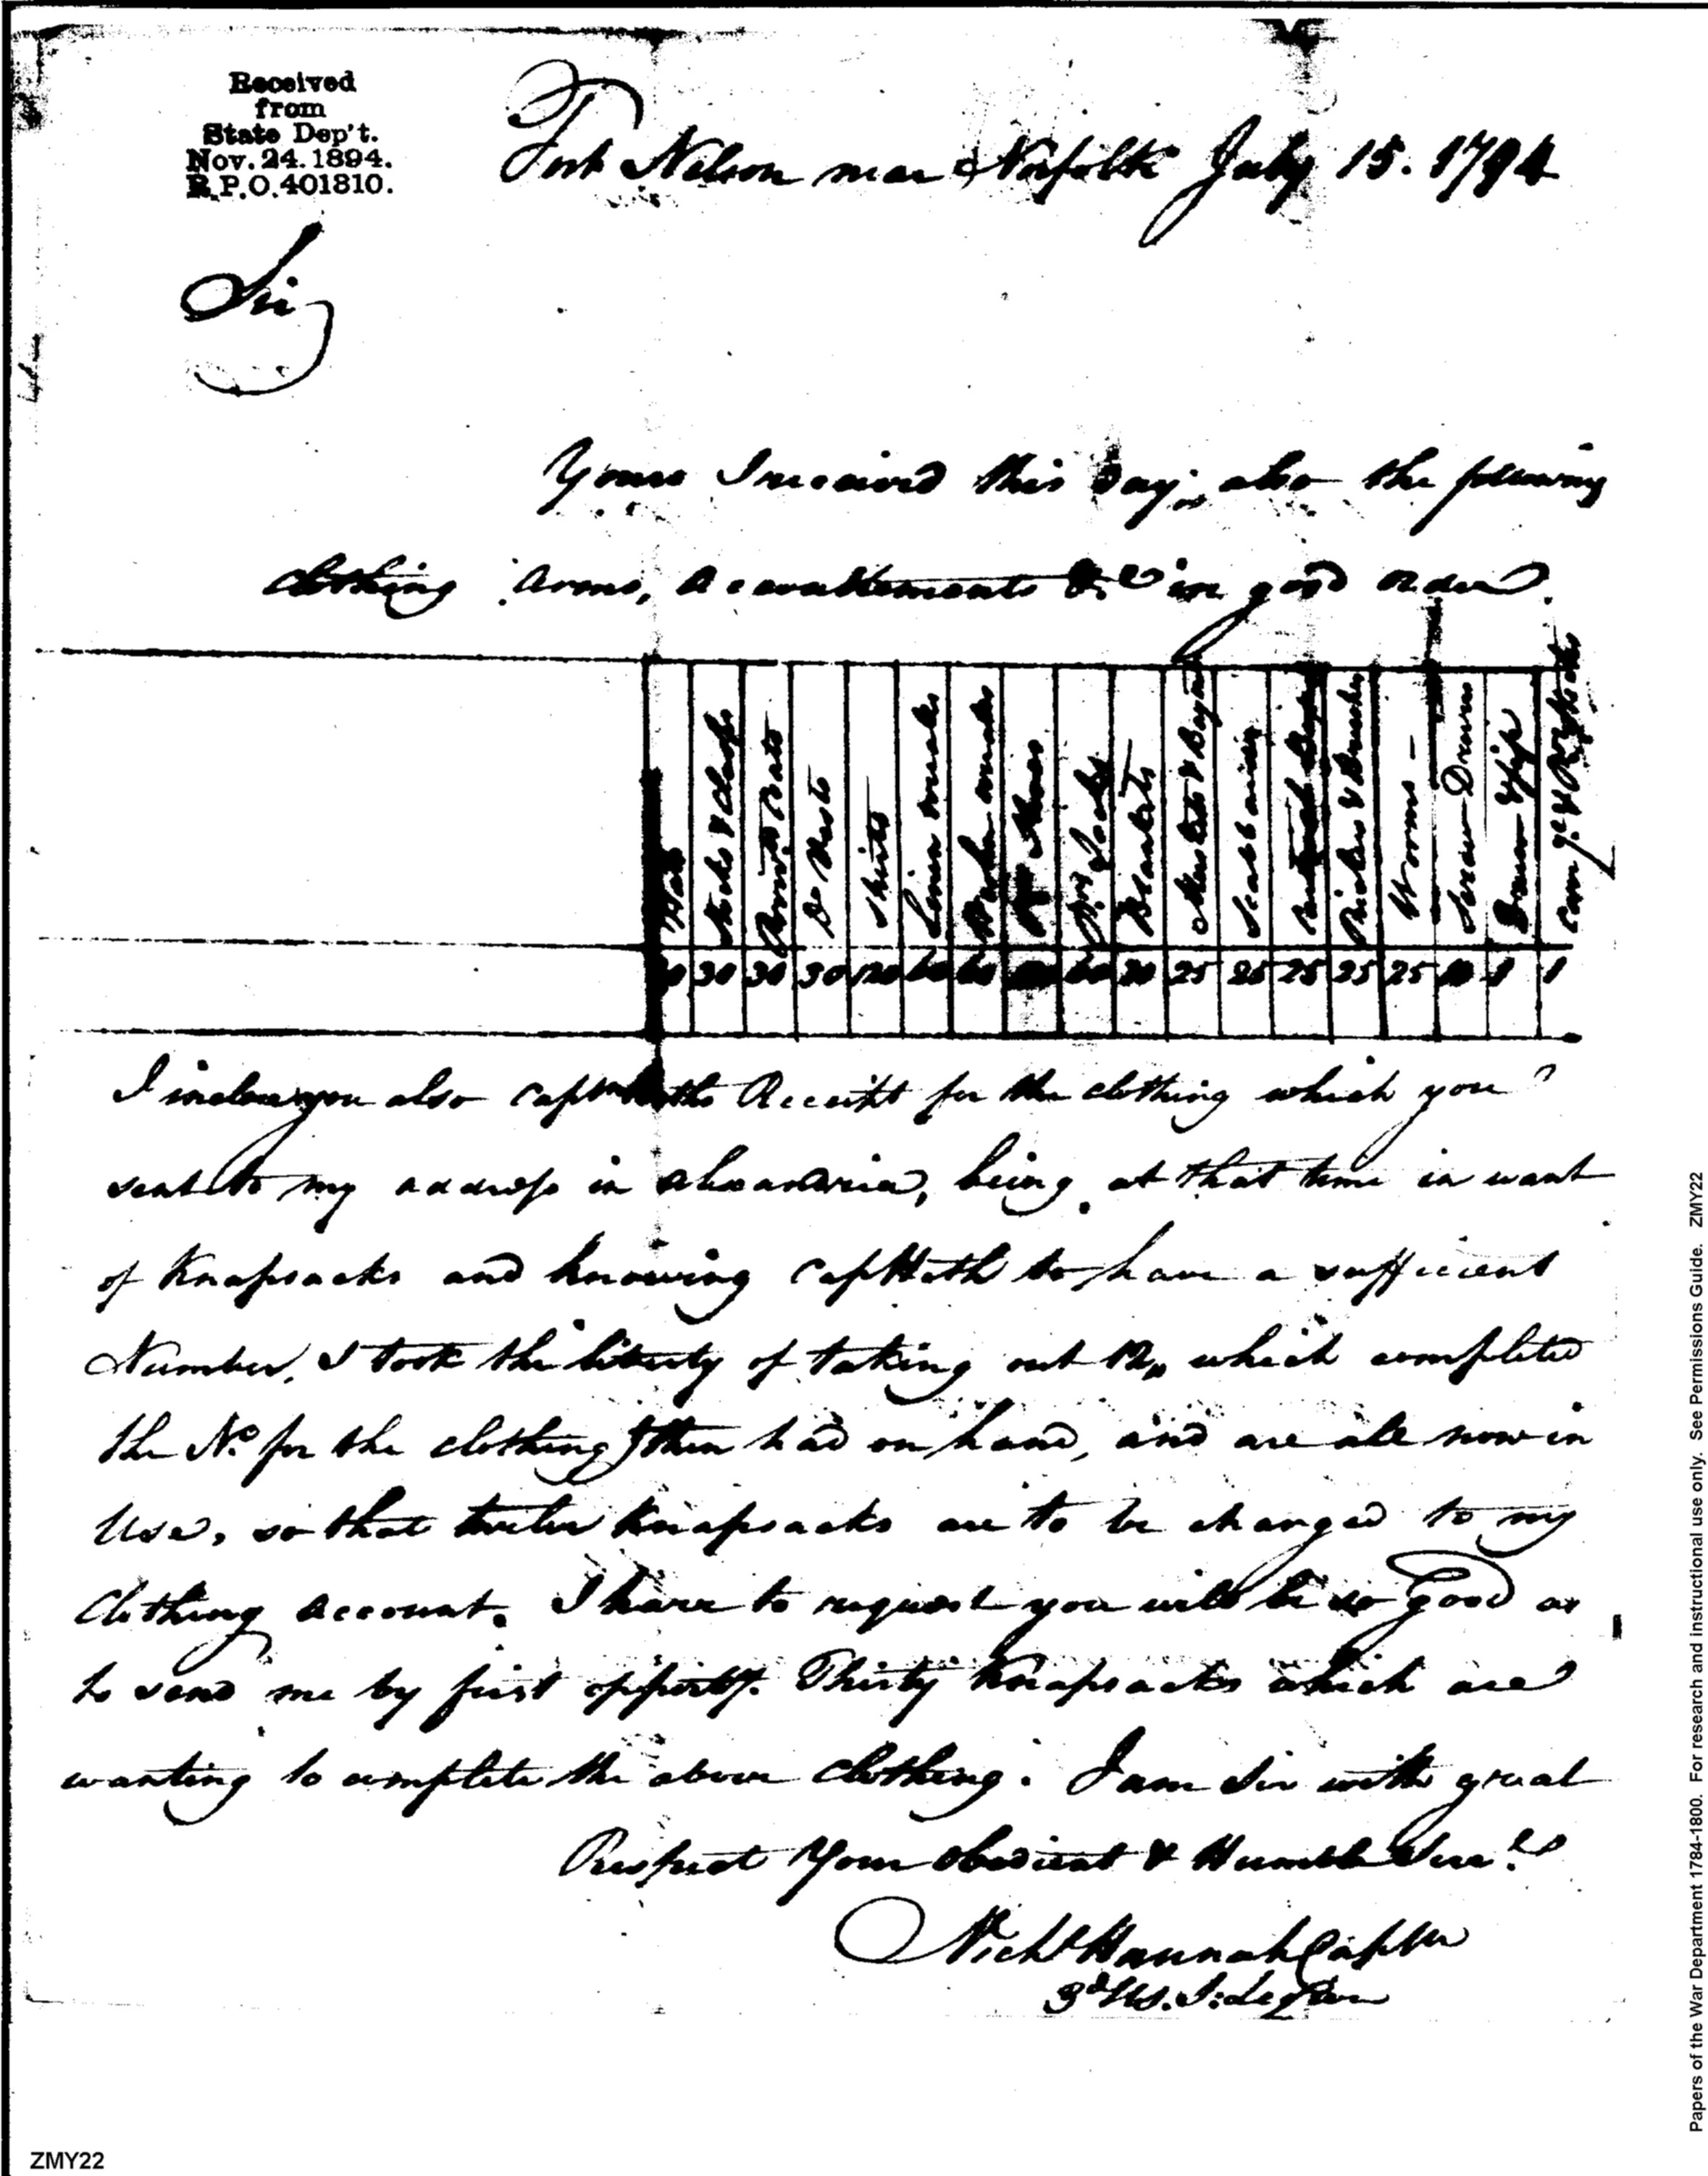 Received
from
State Dep't.
Nov. 24. 1894.
R.P.O. 401810.
Fort Nelson near Norfolk July 15. 1794
Sir
Yours I received this day, also the following
clothing Arms, Accoutrements &c in good order.
Hats
Stocks & Clasps
Coats
Do Vests
Shirts
Linen overalls
Woolen overalls
Shoes
Socks
Blankets
Muskets & Bayts
Scabbards
Pickers & Brushes
Worms
Screw Drivers
Drum & fife
30 30 30 120 60 60 60 30 25 25 25 25 25 10 1 1
I inclose you also Captn Receipt for the clothing which you
sent to my address in Alexandria, being at that time in want
of Knapsacks and knowing Capt Heth to have a sufficient
Number, I took the liberty of taking out 12, which completed
the No. for the clothing I then had on hand, and are all now in
Use, so that twelve Knapsacks are to be charged to my
Clothing Account. I have to request you will be so Good as
to send me by first opporty. Thirty Knapsacks which are
wanting to complete the above clothing. I am Sir with great
Respect Your Obedient & Humble Servt
Nichs Hannah Captn
3d U.S. S: Legion
ZMY22
Papers of the War Department 1784-1800. For research and instructional use only. See Permissions Guide. ZMY22